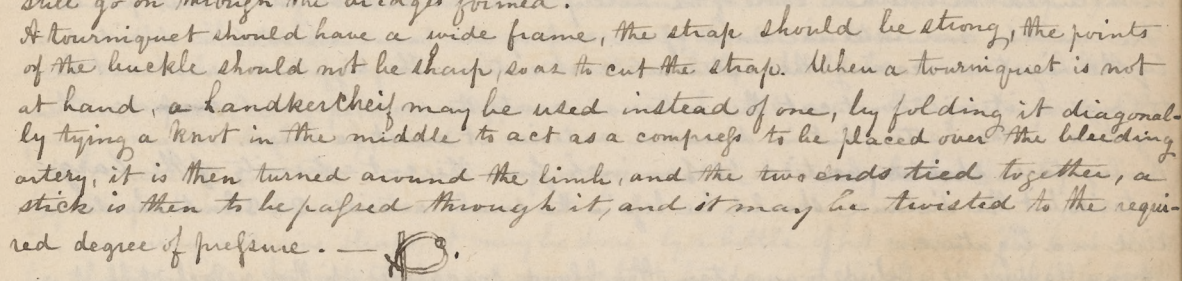 still go on through the dredges formed.
A tourniquet should have a wide frame, the strap should be strong, the points
of the buckle should not be sharp, so as to cut the strap. When a tourniquet is not
at hand, a handkercheif may be used instead of one, by folding it diagonal-
ly tying a knot in the middle to act as a compress to be placed over the bleeding
artery, it is then turned around the limb, and the two ends tied together, a
stick is then to be passed through it, and it may be twisted to the requi-
red degree of pressure. —